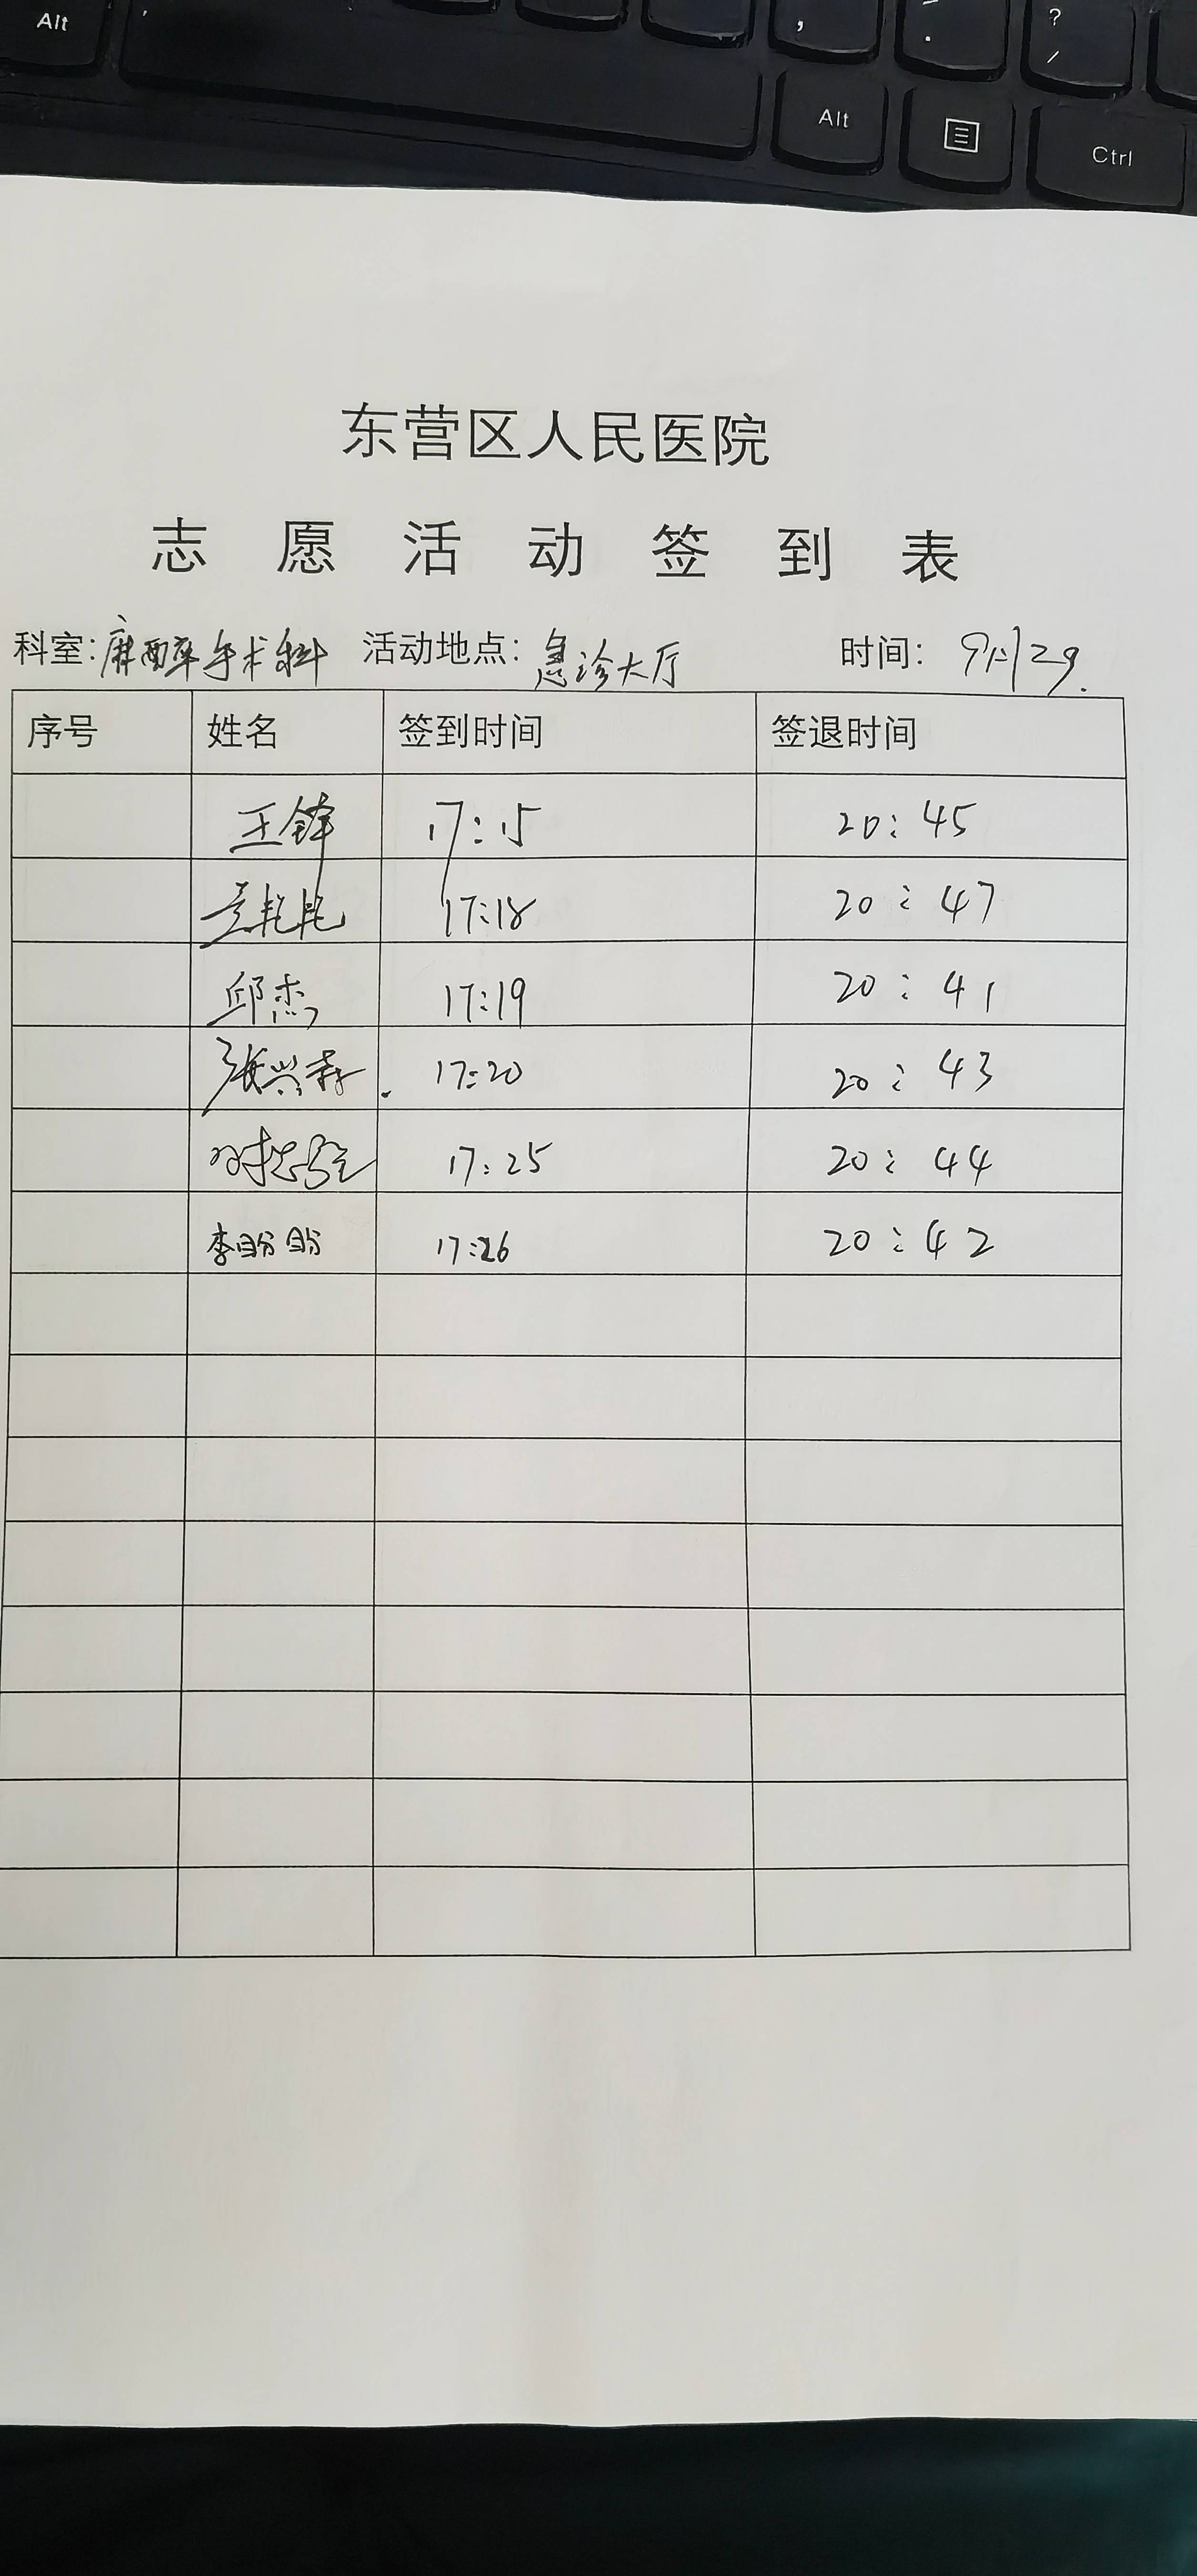 Alt
,
.
?
/
Alt
Ctrl
东营区人民医院
志愿活动签到表
科室:麻醉手术科 活动地点:急诊大厅 时间: 9月29.
序号 姓名 签到时间 签退时间
王锋 17:15 20:45
17:18 20:47
邱杰 17:19 20:41
张兴森 17:20 20:43
17:25 20:44
李盼盼 17:26 20:42